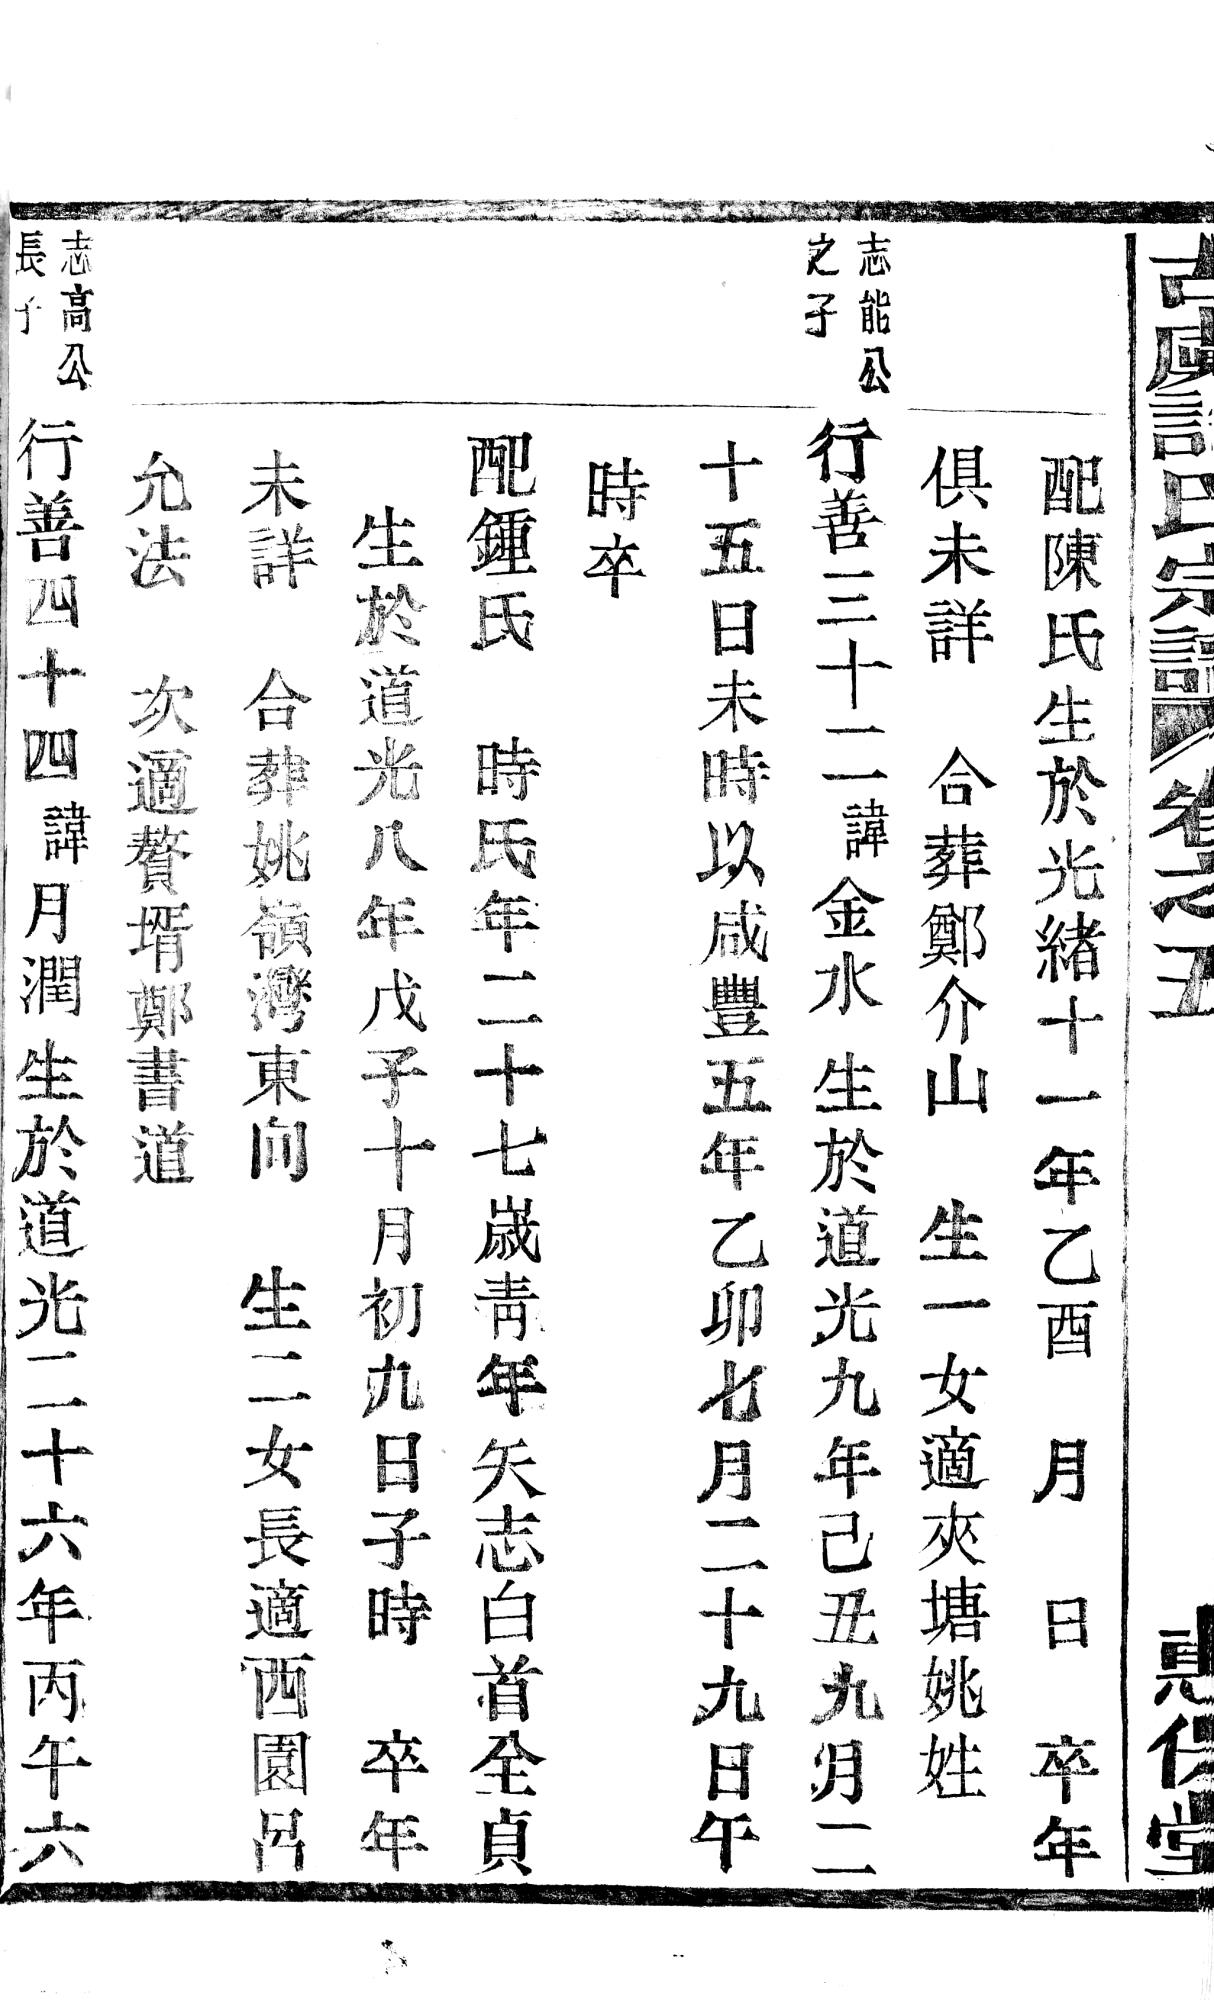 氏宗譜 卷之五 惠保堂
配陳氏生於光緒十一年乙酉 月 日 卒年
俱未詳 合葬鄭介山 生一女適夾塘姚姓
志能公
之子
行善三十二諱金水 生於道光九年己丑九月二
十五日未時以咸豐五年乙卯七月二十九日午
時卒
配鍾氏 時氏年二十七歲青年矢志白首全貞
生於道光八年戊子十月初九日子時 卒年
未詳 合葬姚嶺灣東向 生二女長適西園呂
允法 次適贅壻鄭書道
志高公
長子
行善四十四諱月潤生於道光二十六年丙午六